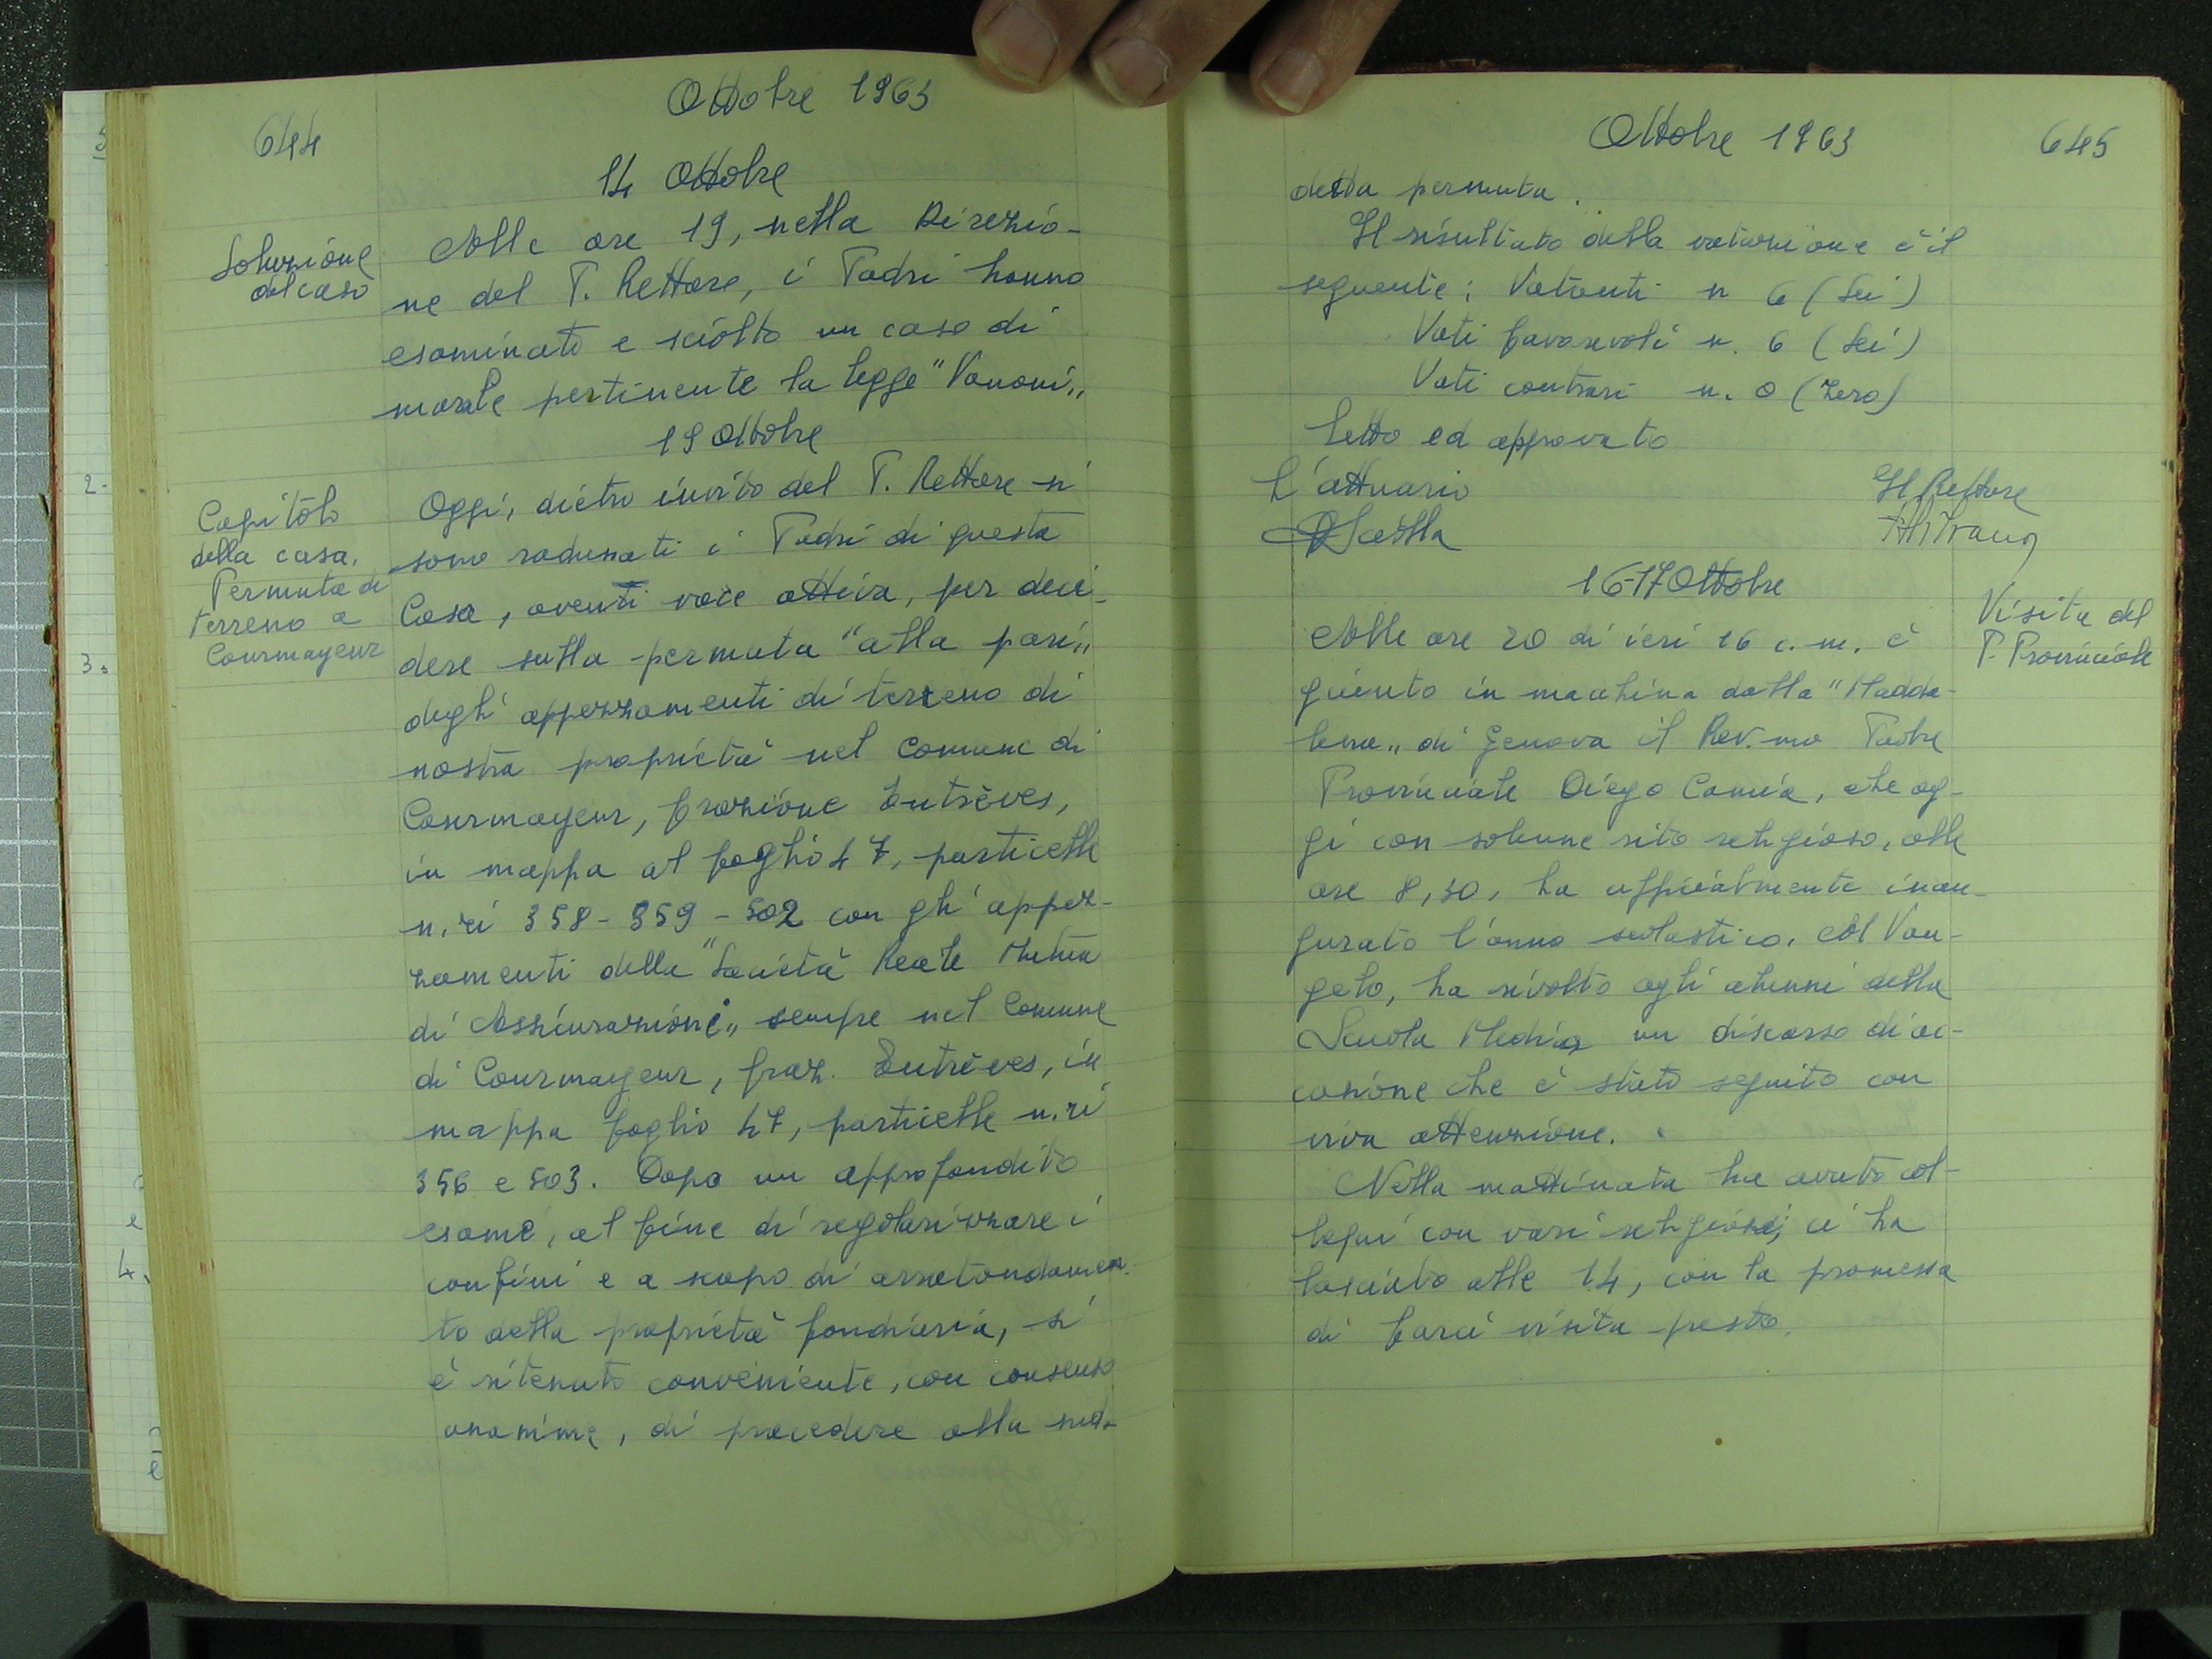 644
Ottobre 1963
14 Ottobre
Soluzione
del caso
Alle ore 19, nella Direzio-
ne del P. Rettore, i Padri hanno
esaminato e sciolto un caso di
morale pertinente la legge "Vanoni"
19 Ottobre
Capitolo
della casa.
Permuta di
terreno a
Courmayeur
Oggi, dietro invito del P. Rettore si
sono radunati i Padri di questa
Casa, aventi voce attiva, per deci-
dere sulla permuta "alla pari"
degli appezzamenti di terreno di
nostra proprietà nel Comune di
Courmayeur, frazione Entrèves,
in mappa al foglio 47, particelle
n.ri 358 - 359 - 502 con gli appez-
zamenti della "Società Reale Mutua
di Assicurazioni" sempre nel Comune
di Courmayeur, fraz. Entrèves, in
mappa foglio 47, particelle n.ri
356 e 503. Dopo un approfondito
esame, al fine di regolarizzare i
confini e a scopo di arrotondamen-
to della proprietà fondiaria, si
è ritenuto conveniente, con consenso
unanime, di procedere alla sud-
Ottobre 1963
645
detta permuta.
Il risultato della votazione è il
seguente: Votanti n 6 (Sei)
Voti favorevoli n. 6 (Sei)
Voti contrari n. 0 (Zero)
Letto ed approvato
L'attuario
Il Rettore
16-17 Ottobre
Visita del
P. Provinciale
Alle ore 20 di ieri 16 c. m. è
giunto in macchina dalla "Madda-
lena" di Genova il Rev.mo Padre
Provinciale Diego Camia, che og-
gi con solenne rito religioso, alle
ore 8,30, ha ufficialmente inau-
gurato l'anno scolastico. Al Van-
gelo, ha rivolto agli alunni della
Scuola Media un discorso di oc-
casione che è stato seguito con
viva attenzione.
Nella mattinata ha avuto col-
loqui con vari religiosi; ci ha
lasciato alle 14, con la promessa
di farci visita presto.